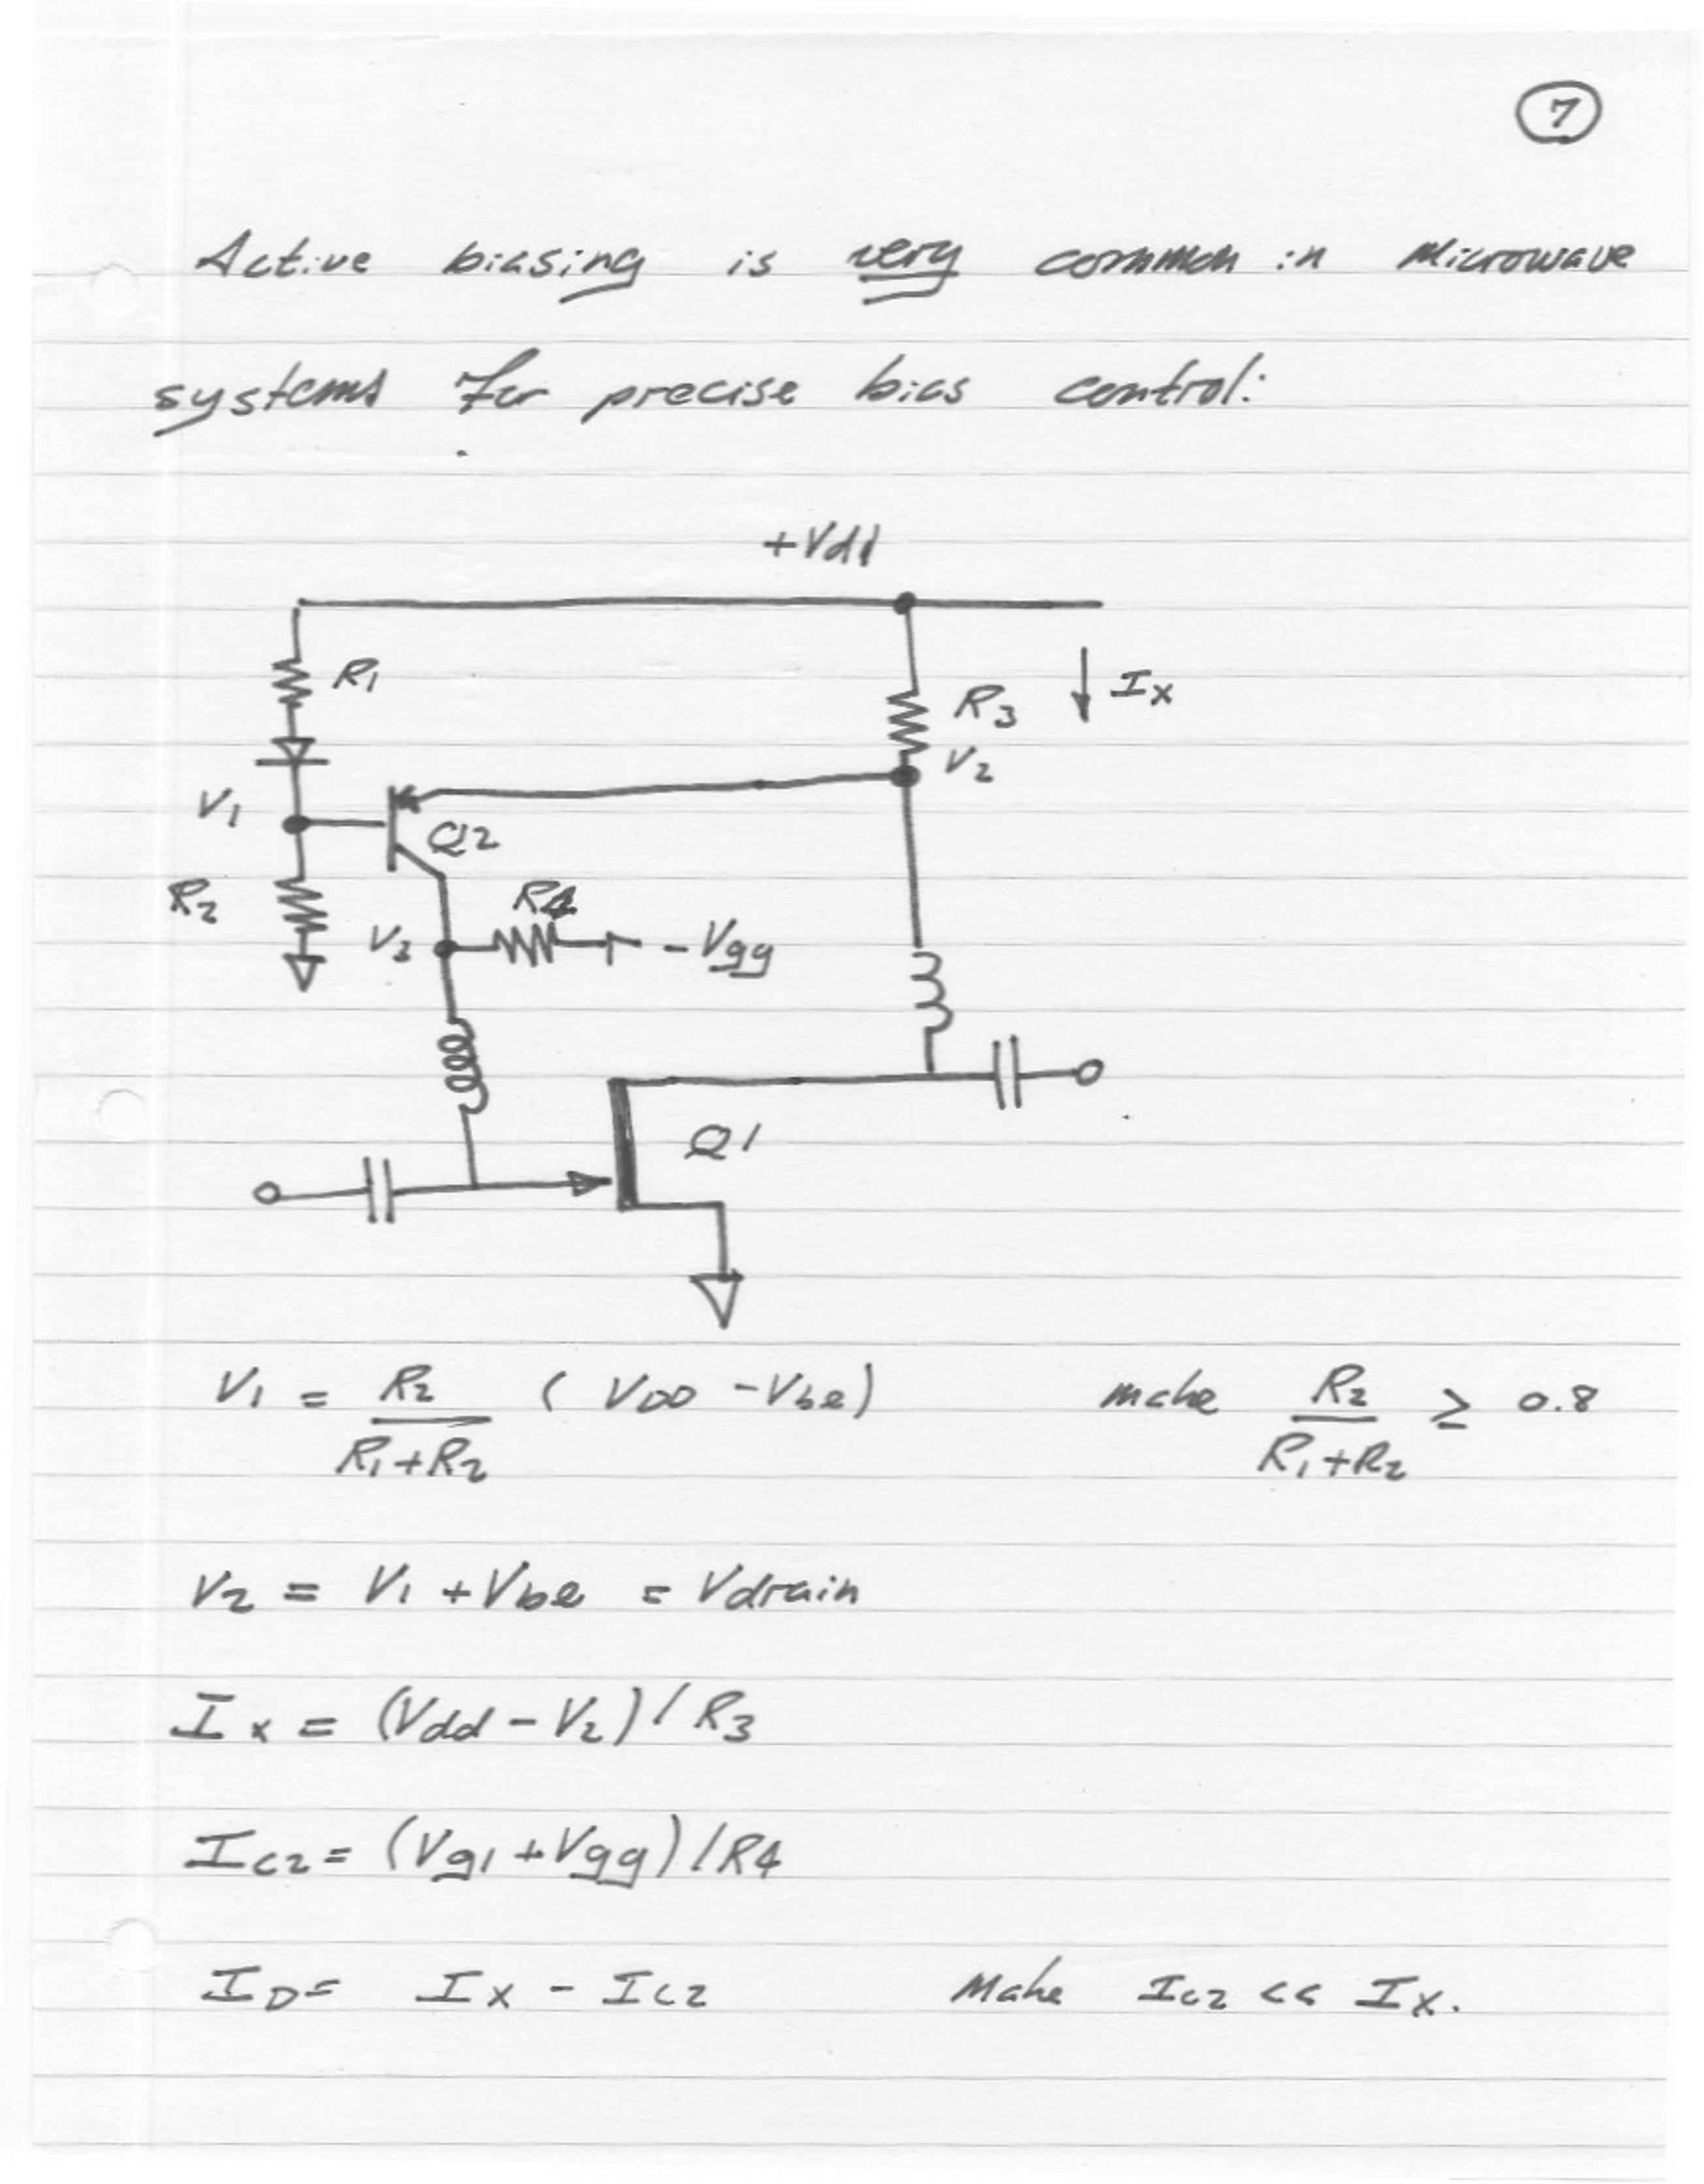 7
Active biasing is very common in Microwave
systems for precise bias control:
+Vdd
R1
Ix
R3
V2
V1
Q2
R2
R4
V3
-Vgg
Q1
V1 = R2 / (R1+R2) (VDD - Vbe) make R2 / (R1+R2) ≥ 0.8
V2 = V1 + Vbe = Vdrain
Ix = (Vdd - V2) / R3
Ic2 = (Vg1 + Vgg) / R4
ID = Ix - Ic2 Make Ic2 << Ix.